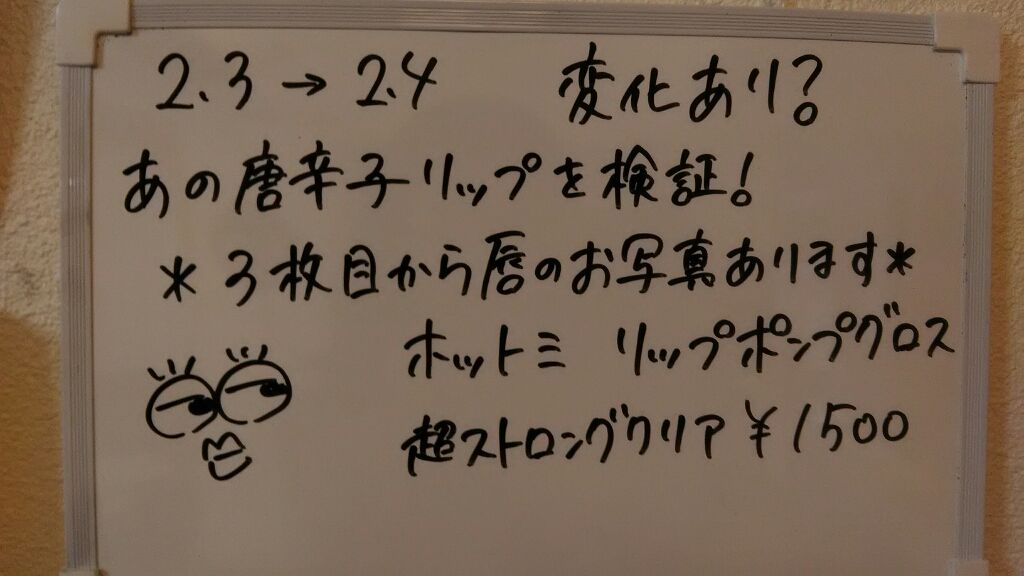 2.3→2.4 変化あり?
あの唐辛子リップを検証!
*3枚目から唇のお写真あります*
ホットミ リップポンプグロス
超ストロングクリア ¥1500